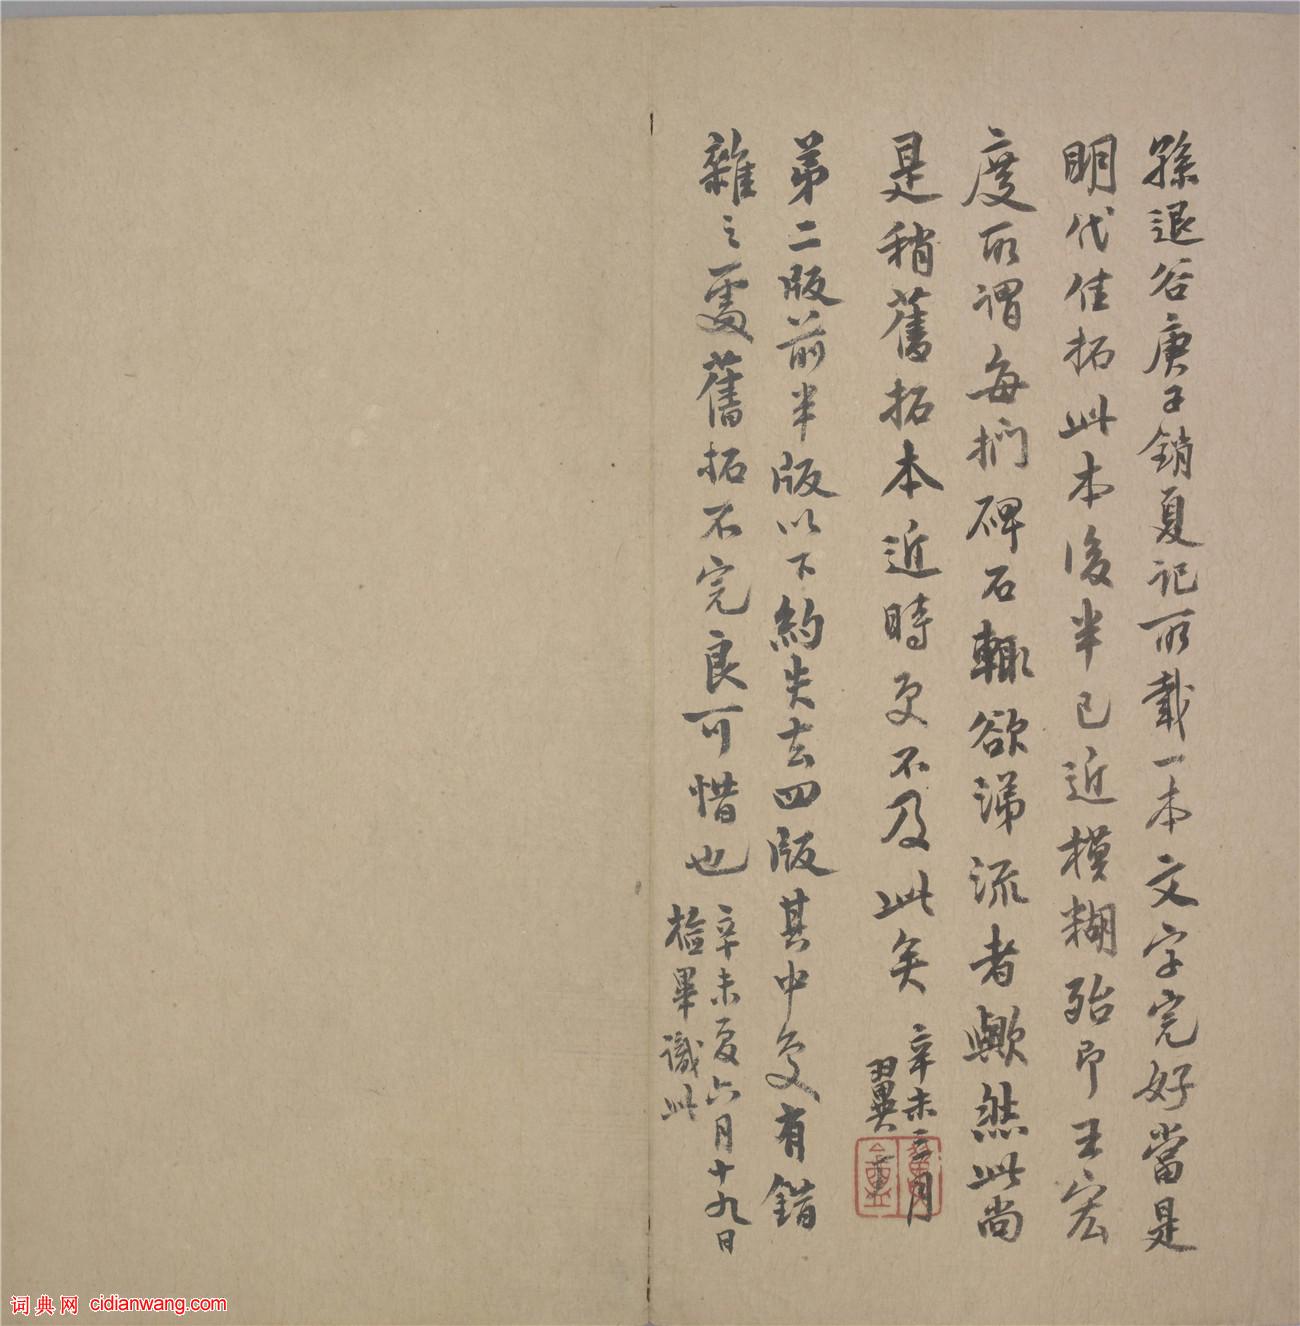 孫退谷庚子銷夏記所載一本文字完好當是
明代佳拓此本後半已近模糊殆即王宏
度所謂每捫碑石輒欲涕流者歟然此尚
是稍舊拓本近時更不及此矣
辛未二月
翼
第二版前半版以下約失去四版其中更有錯
雜之處舊拓不完良可惜也
辛未夏六月十九日
檢畢識此
词典网 cidianwang.com